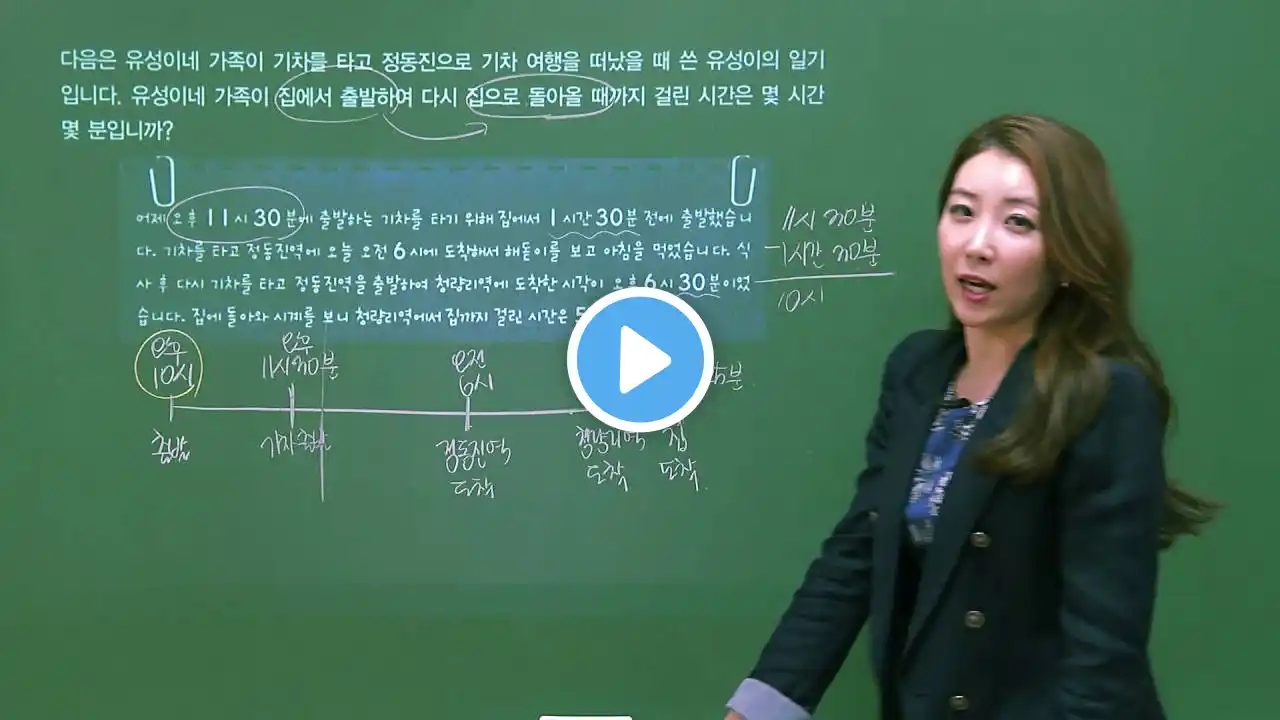 다음은 유성이네 가족이 기차를 타고 정동진으로 기차 여행을 떠났을 때 쓴 유성이의 일기
입니다. 유성이네 가족이 집에서 출발하여 다시 집으로 돌아올 때까지 걸린 시간은 몇 시간
몇 분입니까?
어제 오후 11시 30분에 출발하는 기차를 타기 위해 집에서 1시간 30분 전에 출발했습니
다. 기차를 타고 정동진역에 오늘 오전 6시에 도착해서 해돋이를 보고 아침을 먹었습니다. 식
사 후 다시 기차를 타고 정동진역을 출발하여 청량리역에 도착한 시각이 오후 6시 30분이었
습니다. 집에 돌아와 시계를 보니 청량리역에서 집까지 걸린 시간은
11시 30분
-1시간 30분
10시
오후 오후 오전
10시 11시 30분 6시 5분
출발 기차 출발 정동진역 청량리역 집
도착 도착 도착